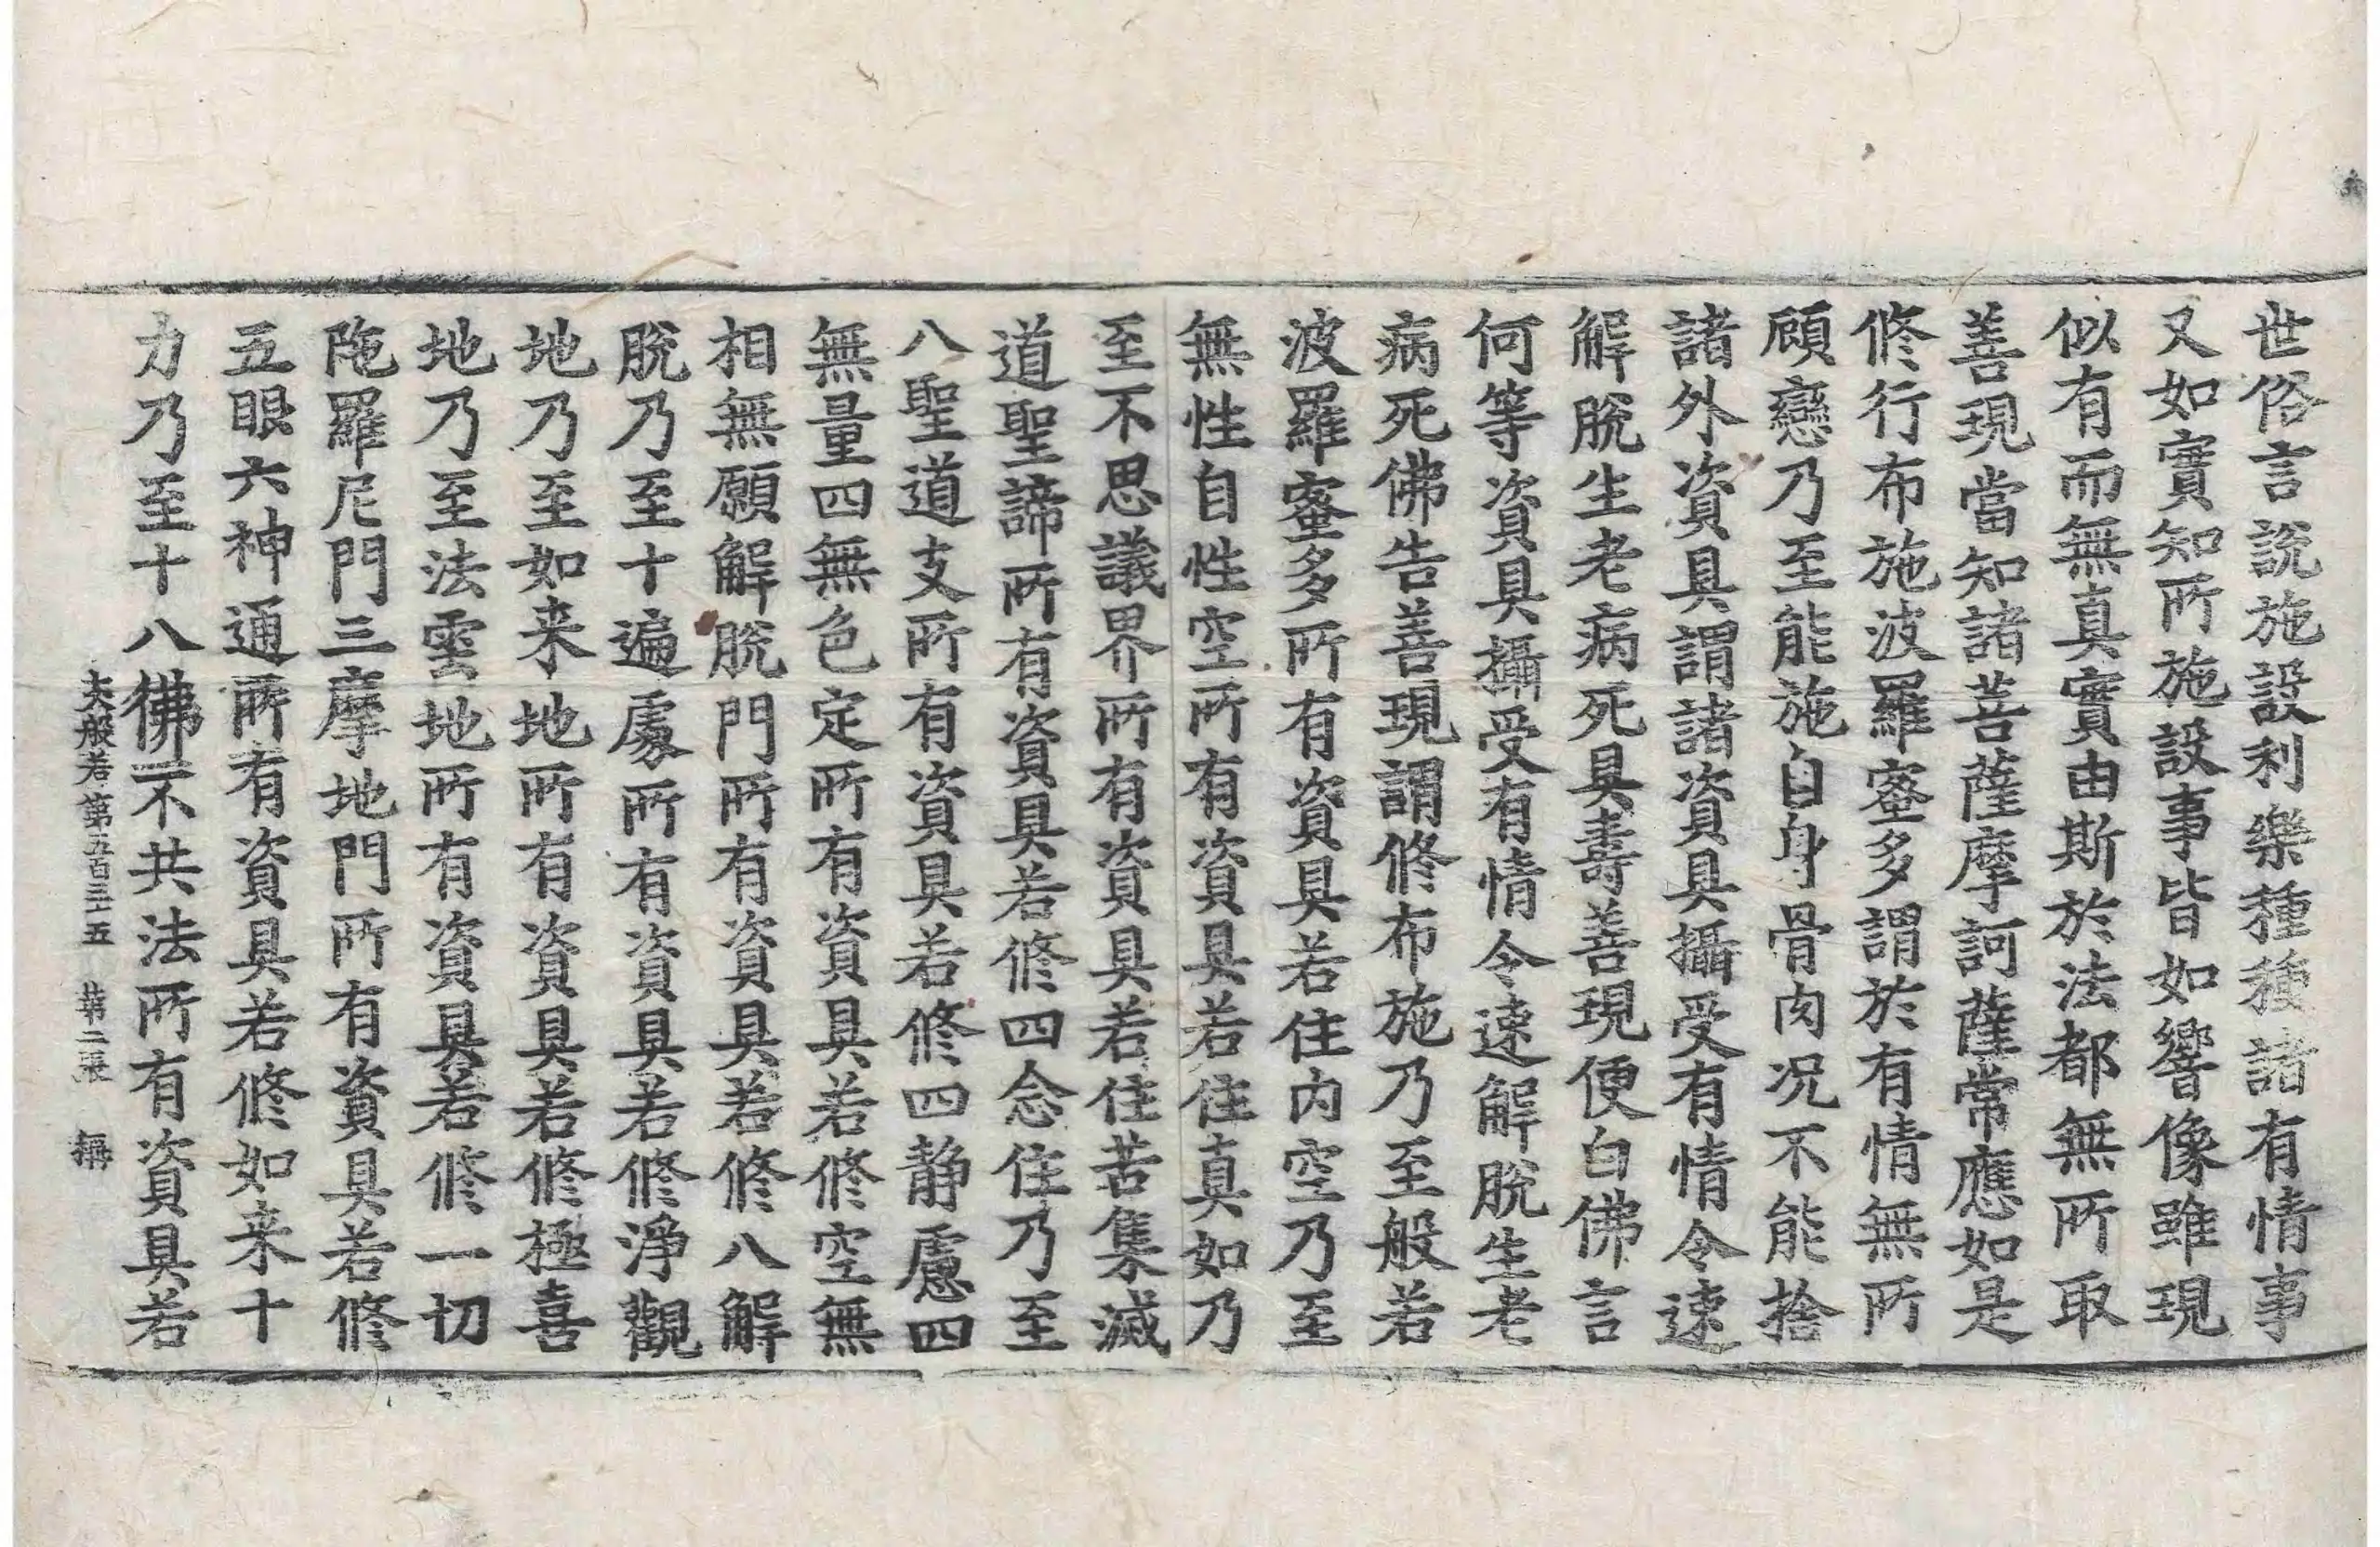 世俗言説施設利樂種種諸有情事
又如實知所施設事皆如響像雖現
似有而無真實由斯於法都無所取
善現當知諸菩薩摩訶薩常應如是
修行布施波羅蜜多謂於有情無所
顧戀乃至能施自身骨肉况不能捨
諸外資具謂諸資具攝受有情令速
解脫生老病死具壽善現便白佛言
何等資具攝受有情令速解脫生老
病死佛告善現謂修布施乃至般若
波羅蜜多所有資具若住内空乃至
無性自性空所有資具若住真如乃
至不思議界所有資具若住苦集滅
道聖諦所有資具若修四念住乃至
八聖道支所有資具若修四静慮四
無量四無色定所有資具若修空無
相無願解脫門所有資具若修八解
脫乃至十遍處所有資具若修淨觀
地乃至如来地所有資具若修極喜
地乃至法雲地所有資具若修一切
陁羅尼門三摩地門所有資具若修
五眼六神通所有資具若修如来十
力乃至十八佛不共法所有資具若
大般若第五百三十五 第二張 稱